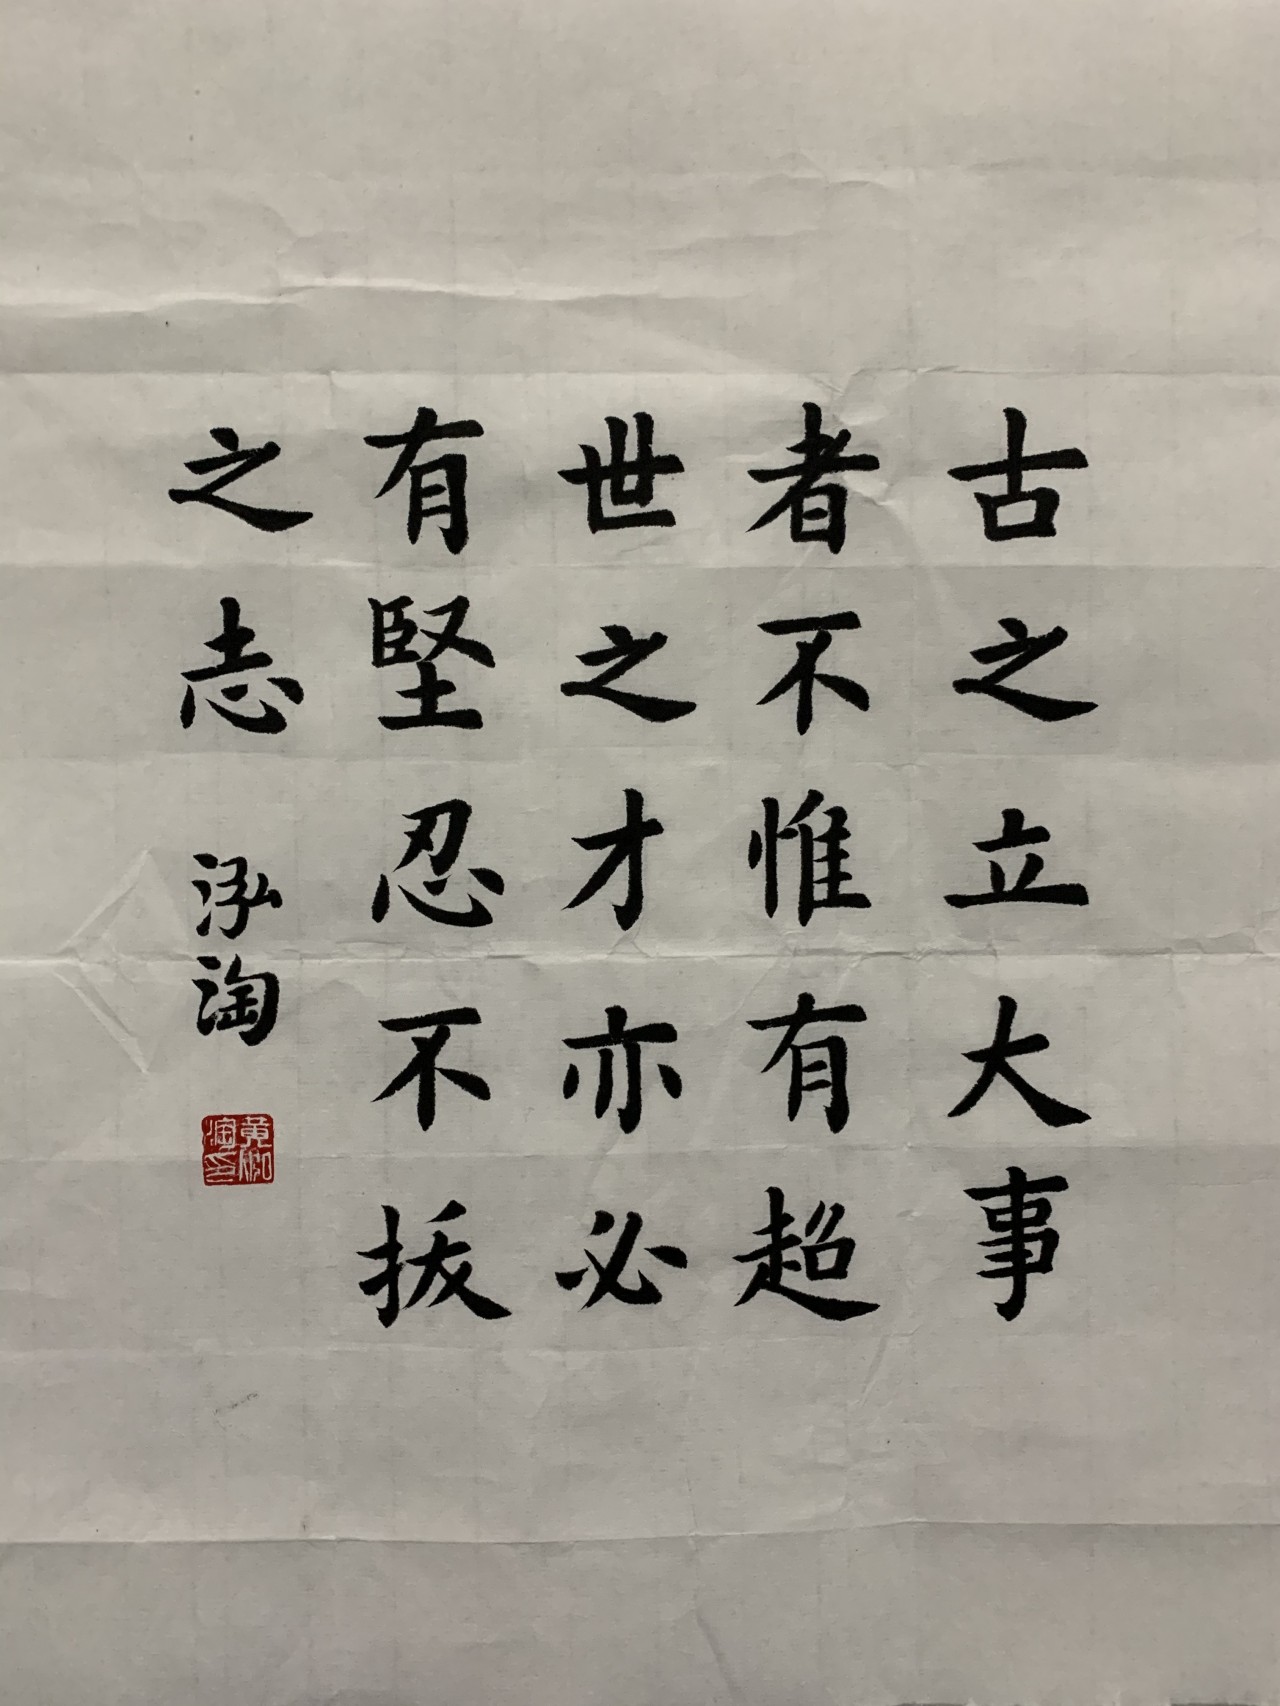 古之立大事
者不惟有超
世之才亦必
有堅忍不拔
之志
泓淘
黄泓淘印